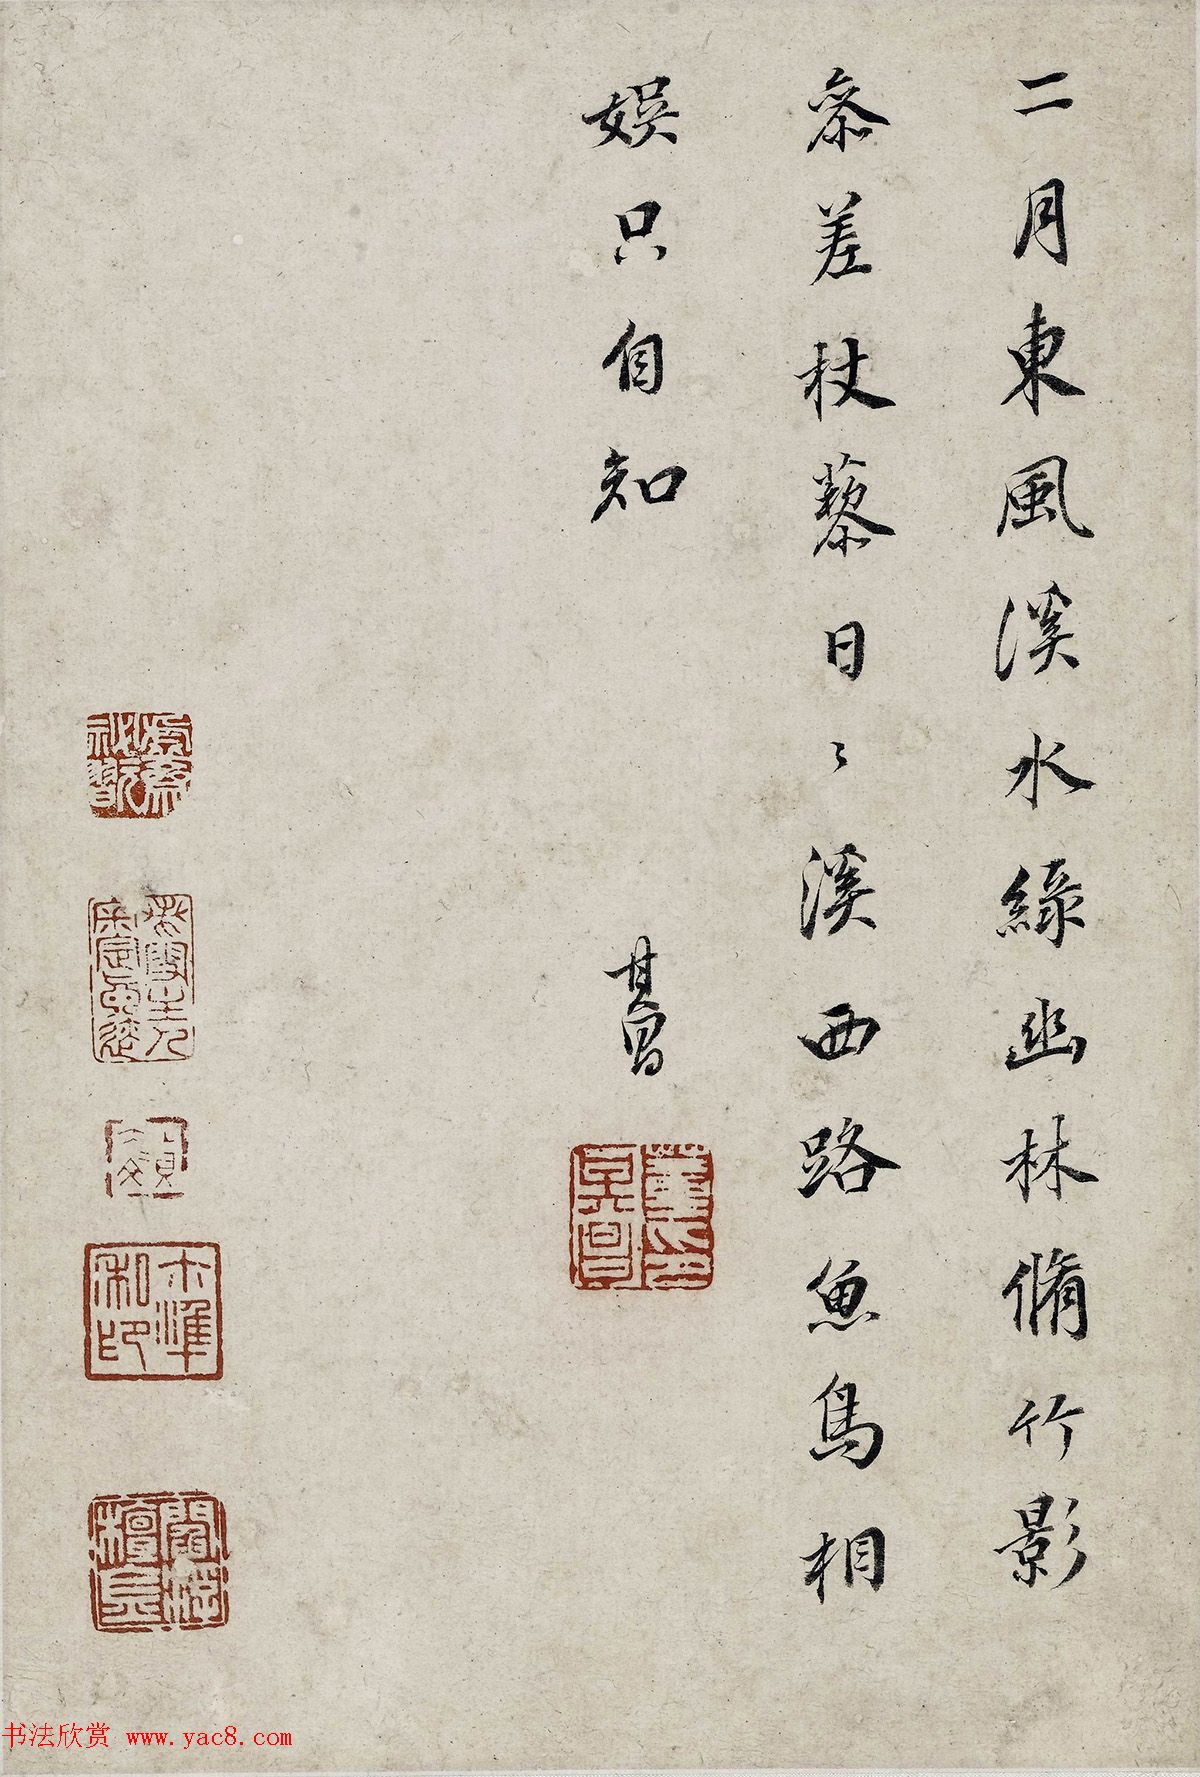 二月東風溪水綠幽林脩竹影
叅差杖藜日〻溪西路魚鳥相
娛只自知
其昌
董其昌
書法欣赏 www.yac8.com